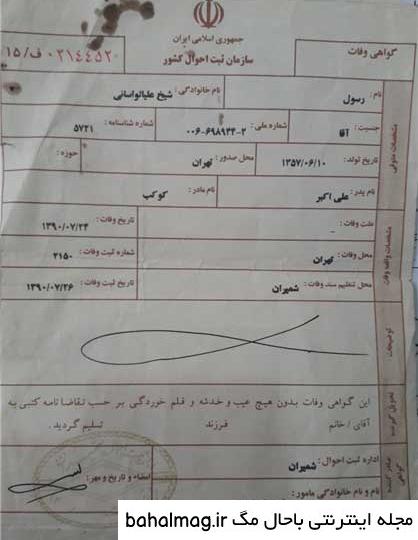 جمهوری اسلامی ایران
سازمان ثبت احوال کشور
گواهی وفات
۲۱۴۴۵۲۰ ف/۱۵
نام: رسول
نام خانوادگی: شیخ علیاتواسانی
جنسیت: آقا
شماره ملی: ۰۰۶-۶۹۸۹۴۴-۲
شماره شناسنامه: ۵۷۲۱
مشخصات متوفی
تاریخ تولد: ۱۳۵۷/۰۶/۱۰
محل صدور: تهران
حوزه:
نام پدر: علی اکبر
نام مادر: کوکب
علت وفات: -
تاریخ وفات: ۱۳۹۰/۰۷/۲۴
مشخصات واقعه وفات
محل وفات: تهران
شماره ثبت وفات: ۲۱۵۰
محل تنظیم سند وفات: شمیران
تاریخ ثبت وفات: ۱۳۹۰/۰۷/۲۶
توضیحات
تحویل گیرنده
این گواهی وفات بدون هیچ عیب و خدشه و قلم خوردگی بر حسب تقاضا نامه کتبی به
آقای / خانم فرزند تسلیم گردید.
صادر کننده گواهی
اداره ثبت احوال: شمیران
امضاء و تاریخ و مهر:
نام و نام خانوادگی مامور:
مجله اینترنتی باحال مگ bahalmag.ir